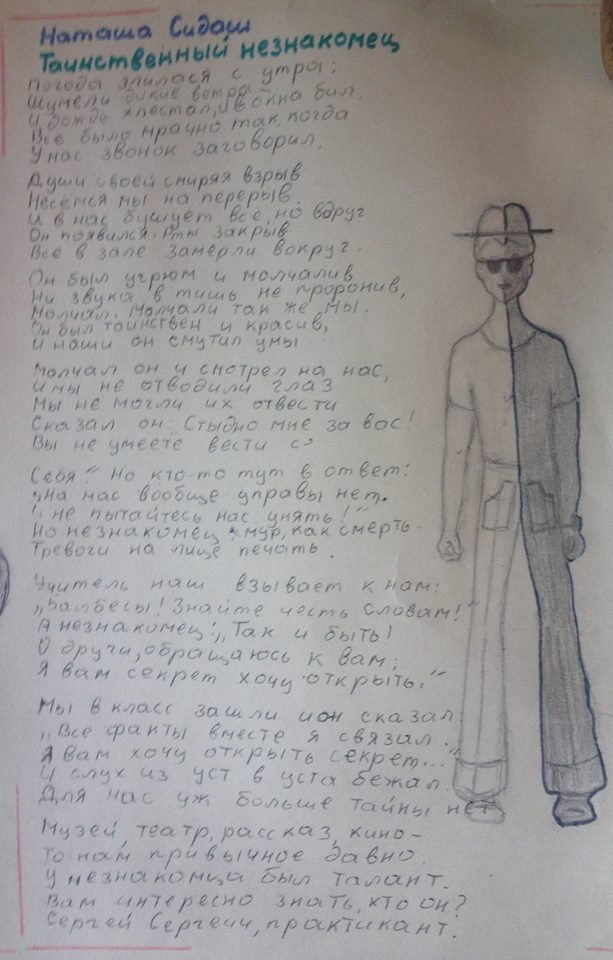 Наташа Сидаш
Таинственный незнакомец
Погода злилася с утра:
Шумели дикие ветра
И дождь хлестал, и в окна бил.
Всё было мрачно так, когда
У нас звонок заговорил.
Души своей смиряя взрыв
Несёмся мы на перерыв.
И в нас бушует всё, но вдруг
Он появился. Рты закрыв
Все в зале замерли вокруг.
Он был угрюм и молчалив
Ни звука в тишь не проронив,
Молчал. Молчали так же мы.
Он был таинствен и красив,
И наши он смутил умы
Молчал он и смотрел на нас,
И мы не отводили глаз
Мы не могли их отвести
Сказал он: „Стыдно мне за вас!
Вы не умеете вести с
Себя." Но кто-то тут в ответ:
„На нас вообще управы нет.
И не пытайтесь нас унять!"
Но незнакомец хмур, как смерть.
Тревоги на лице печать.
Учитель наш взывает к нам:
„Балбесы! Знайте честь словам!"
А незнакомец: „Так и быть!
О други, обращаюсь к вам:
Я вам секрет хочу открыть."
Мы в класс зашли и он сказал
„Все факты вместе я связал.
Я вам хочу открыть секрет..."
И слух из уст в уста бежал.
Для нас уж больше тайны нет
Музей, театр, рассказ, кино-
То нам привычное давно.
У незнакомца был талант.
Вам интересно знать, кто он?
Сергей Сергеич, практикант.